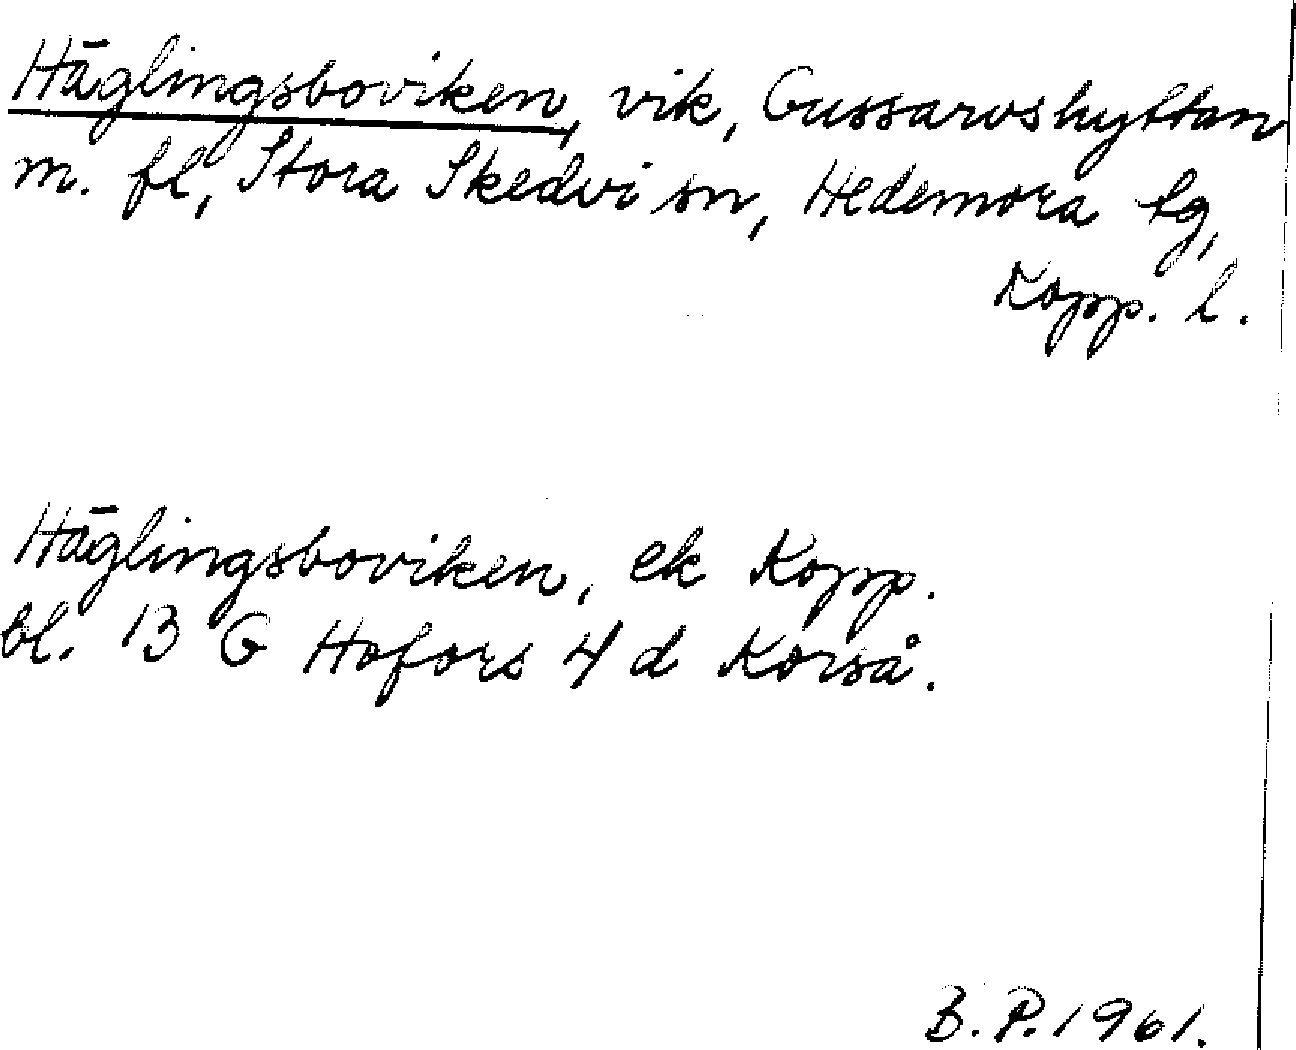 Häglingsboviken, vik, Gussarvshyttan
m. fl, Stora Skedvi sn, Hedemora tg,
Kopp. l.
Häglingsboviken, ek Kopp.
bl. 13 G Hofors 4 d Korså.
B. P. 1961.